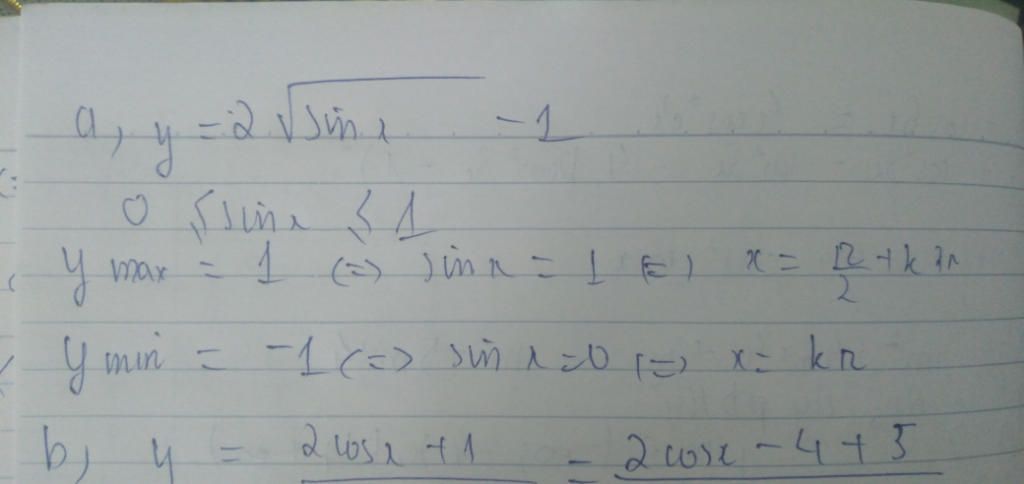 a, y = 2 √sin x - 1
0 ≤ sin x ≤ 1
y max = 1 (=) sin x = 1 (=) x = π/2 + k2π
y min = -1 (=> sin x = 0 (=) x = kπ
b, y = 2cosx + 1 = 2cosx - 4 + 5